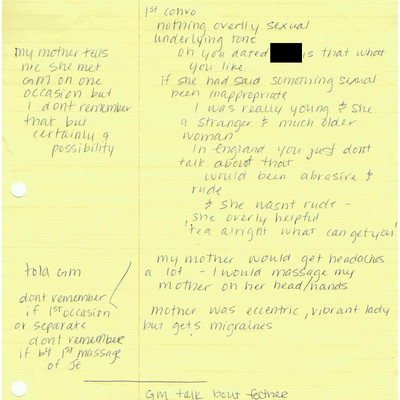 1st convo
nothing overlly sexual
underlying tone
oh you dated is that what
you like
if she had said something sexual
been inappropriate
I was really young & she
a stranger & much older
woman
In england you just dont
talk about that
would been abrasive &
rude
& she wasnt rude -
she overly helpful
'tea alright what can get you'
my mother tells
me she met
GM on one
occasion but
I dont remember
that but
certainly a
possibility
my mother would get headaches
a lot - I would massage my
mother on her head/hands
mother was eccentric, vibrant lady
but gets migraines
told GM
dont remember
if 1st occasion
or separate
dont remember
if b4 1st massage
of JE
GM talk bout father